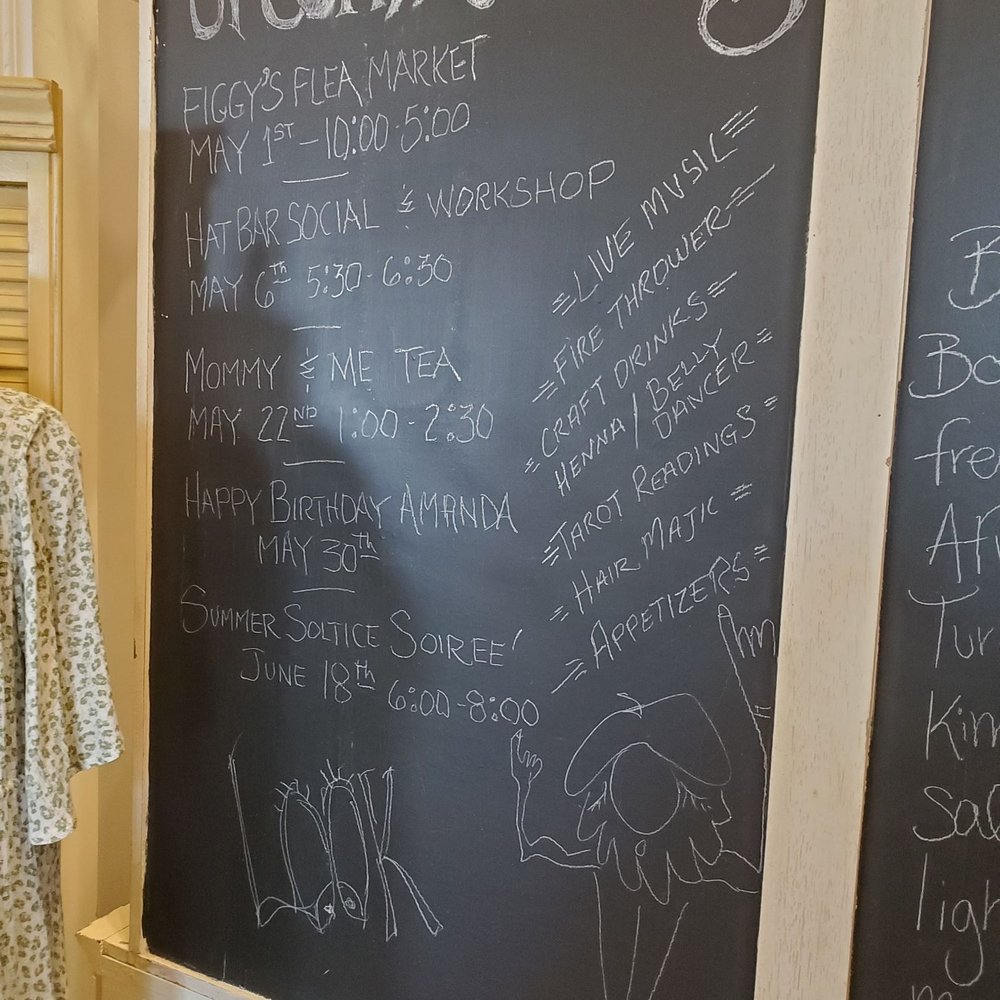 FIGGY'S FLEA MARKET
MAY 1ST - 10:00-5:00
HAT BAR SOCIAL & WORKSHOP
MAY 6th 5:30-6:30
MOMMY & ME TEA
MAY 22ND 1:00-2:30
HAPPY BIRTHDAY AMANDA
MAY 30th
SUMMER SOLTICE SOIREE'
JUNE 18th 6:00-8:00
LOOK
LIVE MUSIC
FIRE THROWER
CRAFT DRINKS
HENNA / BELLY
DANCER
TAROT READINGS
HAIR MAJIC
APPETIZERS